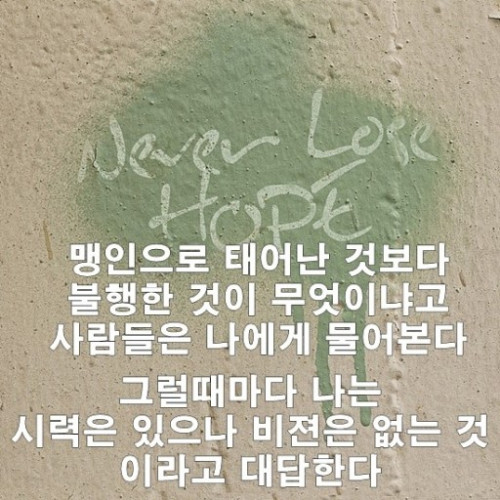 Never Lose
HOPE
맹인으로 태어난 것보다
불행한 것이 무엇이냐고
사람들은 나에게 물어본다
그럴때마다 나는
시력은 있으나 비젼은 없는 것
이라고 대답한다